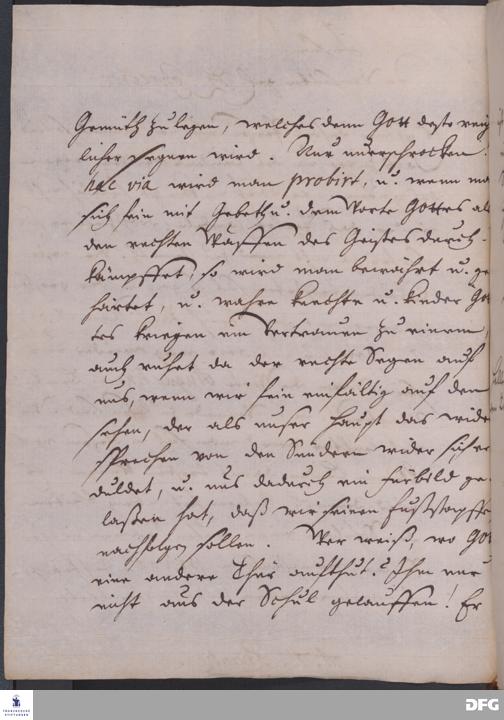 Gemüth zu legen, welches denn Gott desto reich
licher segnen wird. Nur unerschrocken.
hac via wird man probirt, u. wenn ma
sich fein mit Gebeth u. dem Worte Gottes als
den rechten Waffen des Geistes durch-
kämpffet, so wird man bewährt u. ge
härtet, u. wahre Knechte u. Kinder Got
tes kriegen ein Vertrauen zu einem,
auch ruhet da der rechte Segen auf
uns, wenn wir fein einfältig auf den
sehen, der als unser Haupt das wider
sprechen von den Sündern wider sich er
duldet, u. uns dadurch ein fürbild ge
laßen hat, daß wir seinen Fußstapffe
nachfolgen sollen. Wer weiß, wo Got
eine andere Thür aufthut? Ihm nur
nicht aus der Schul gelauffen! Er
FRANCKESCHE
STIFTUNGEN
DFG